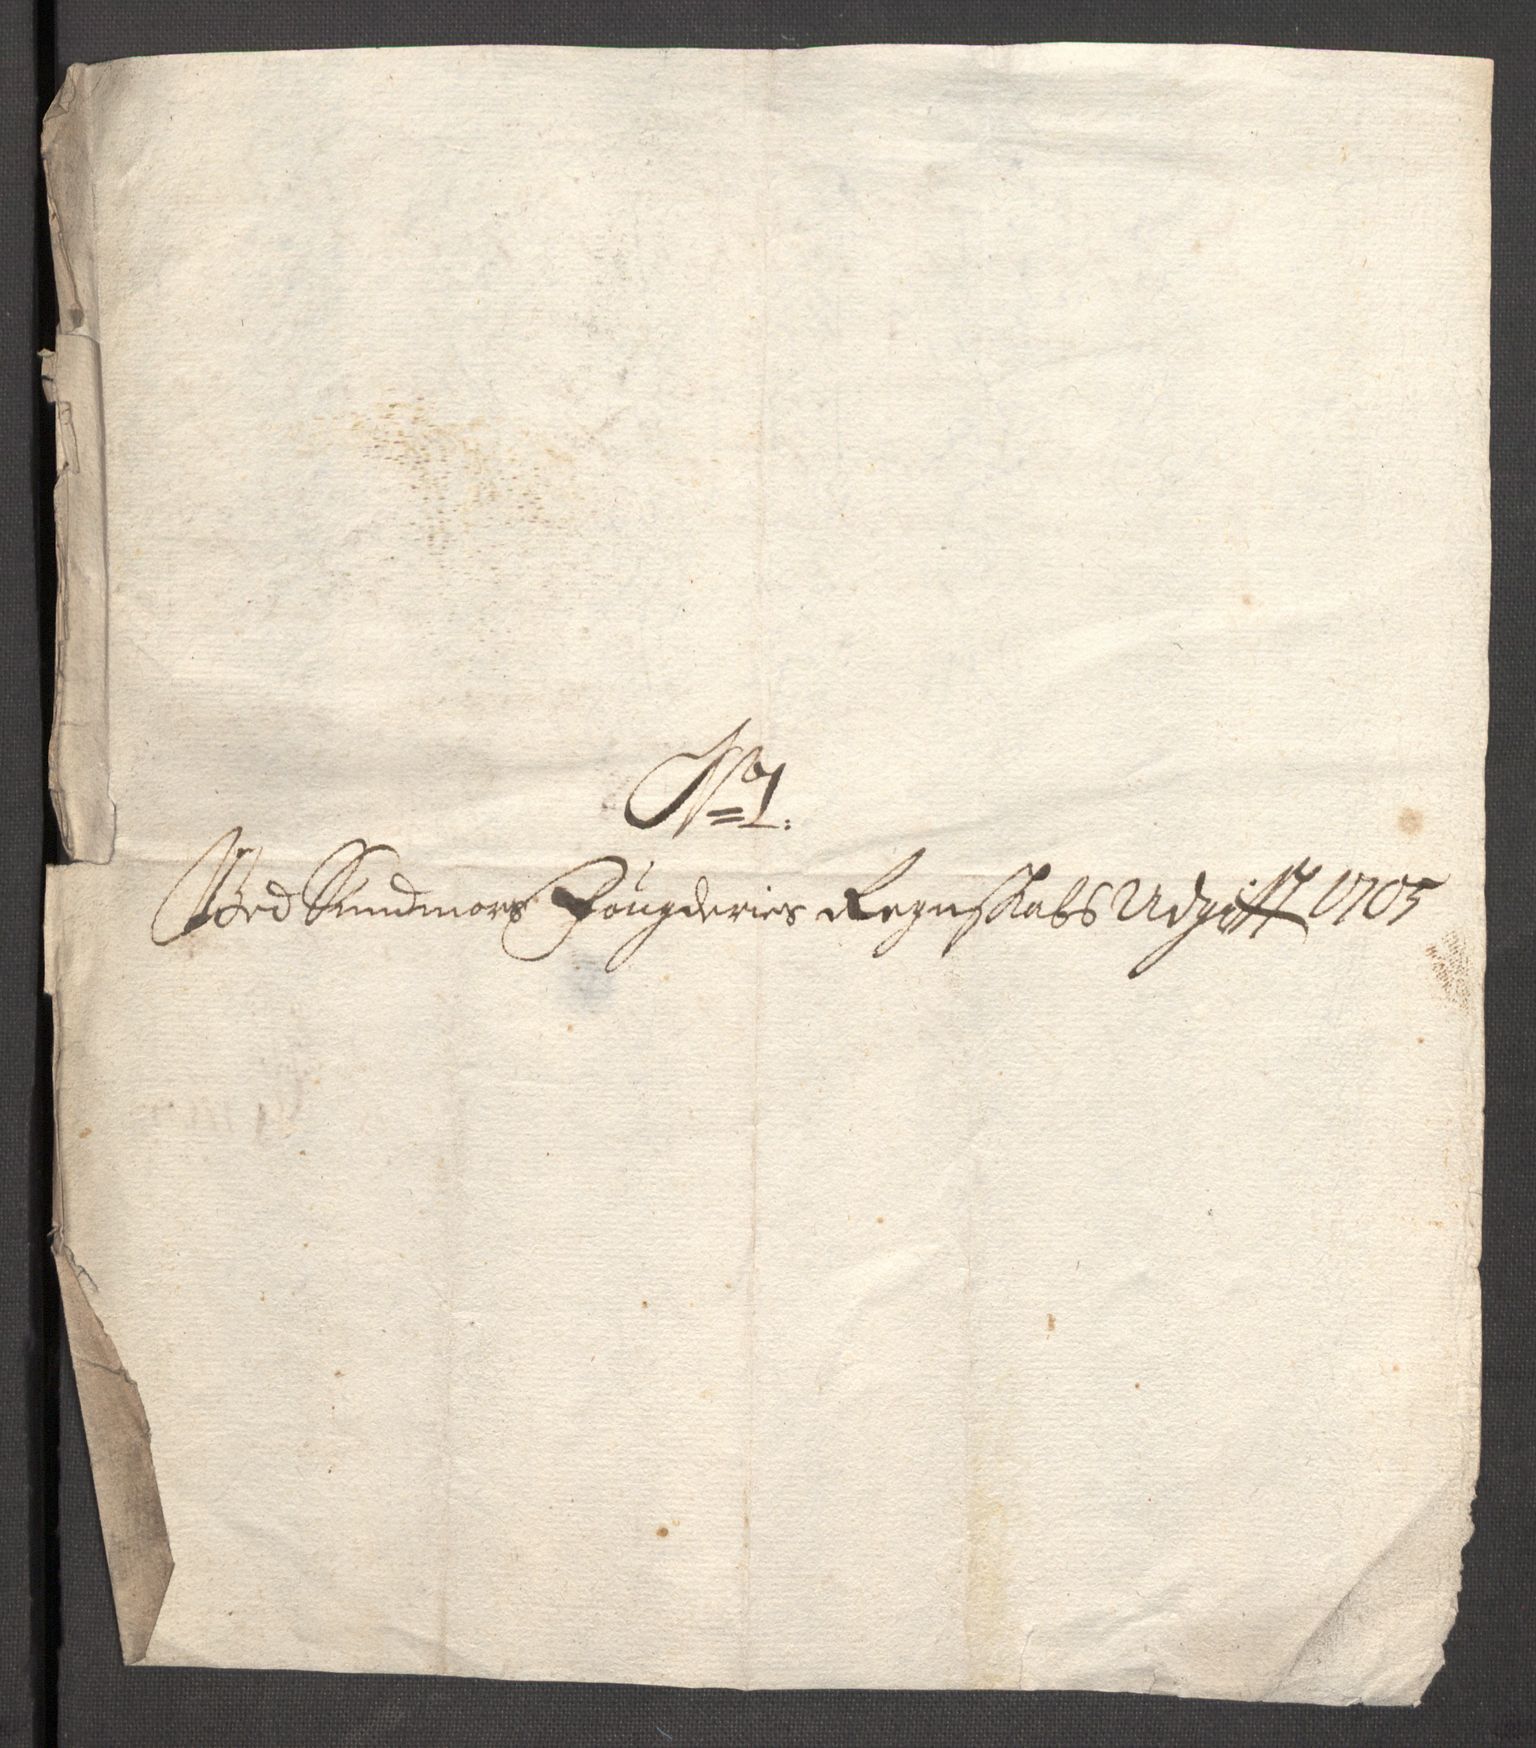 No 1.
Ved Sundmørs Fougderies Regnskabs Udgifft 1705